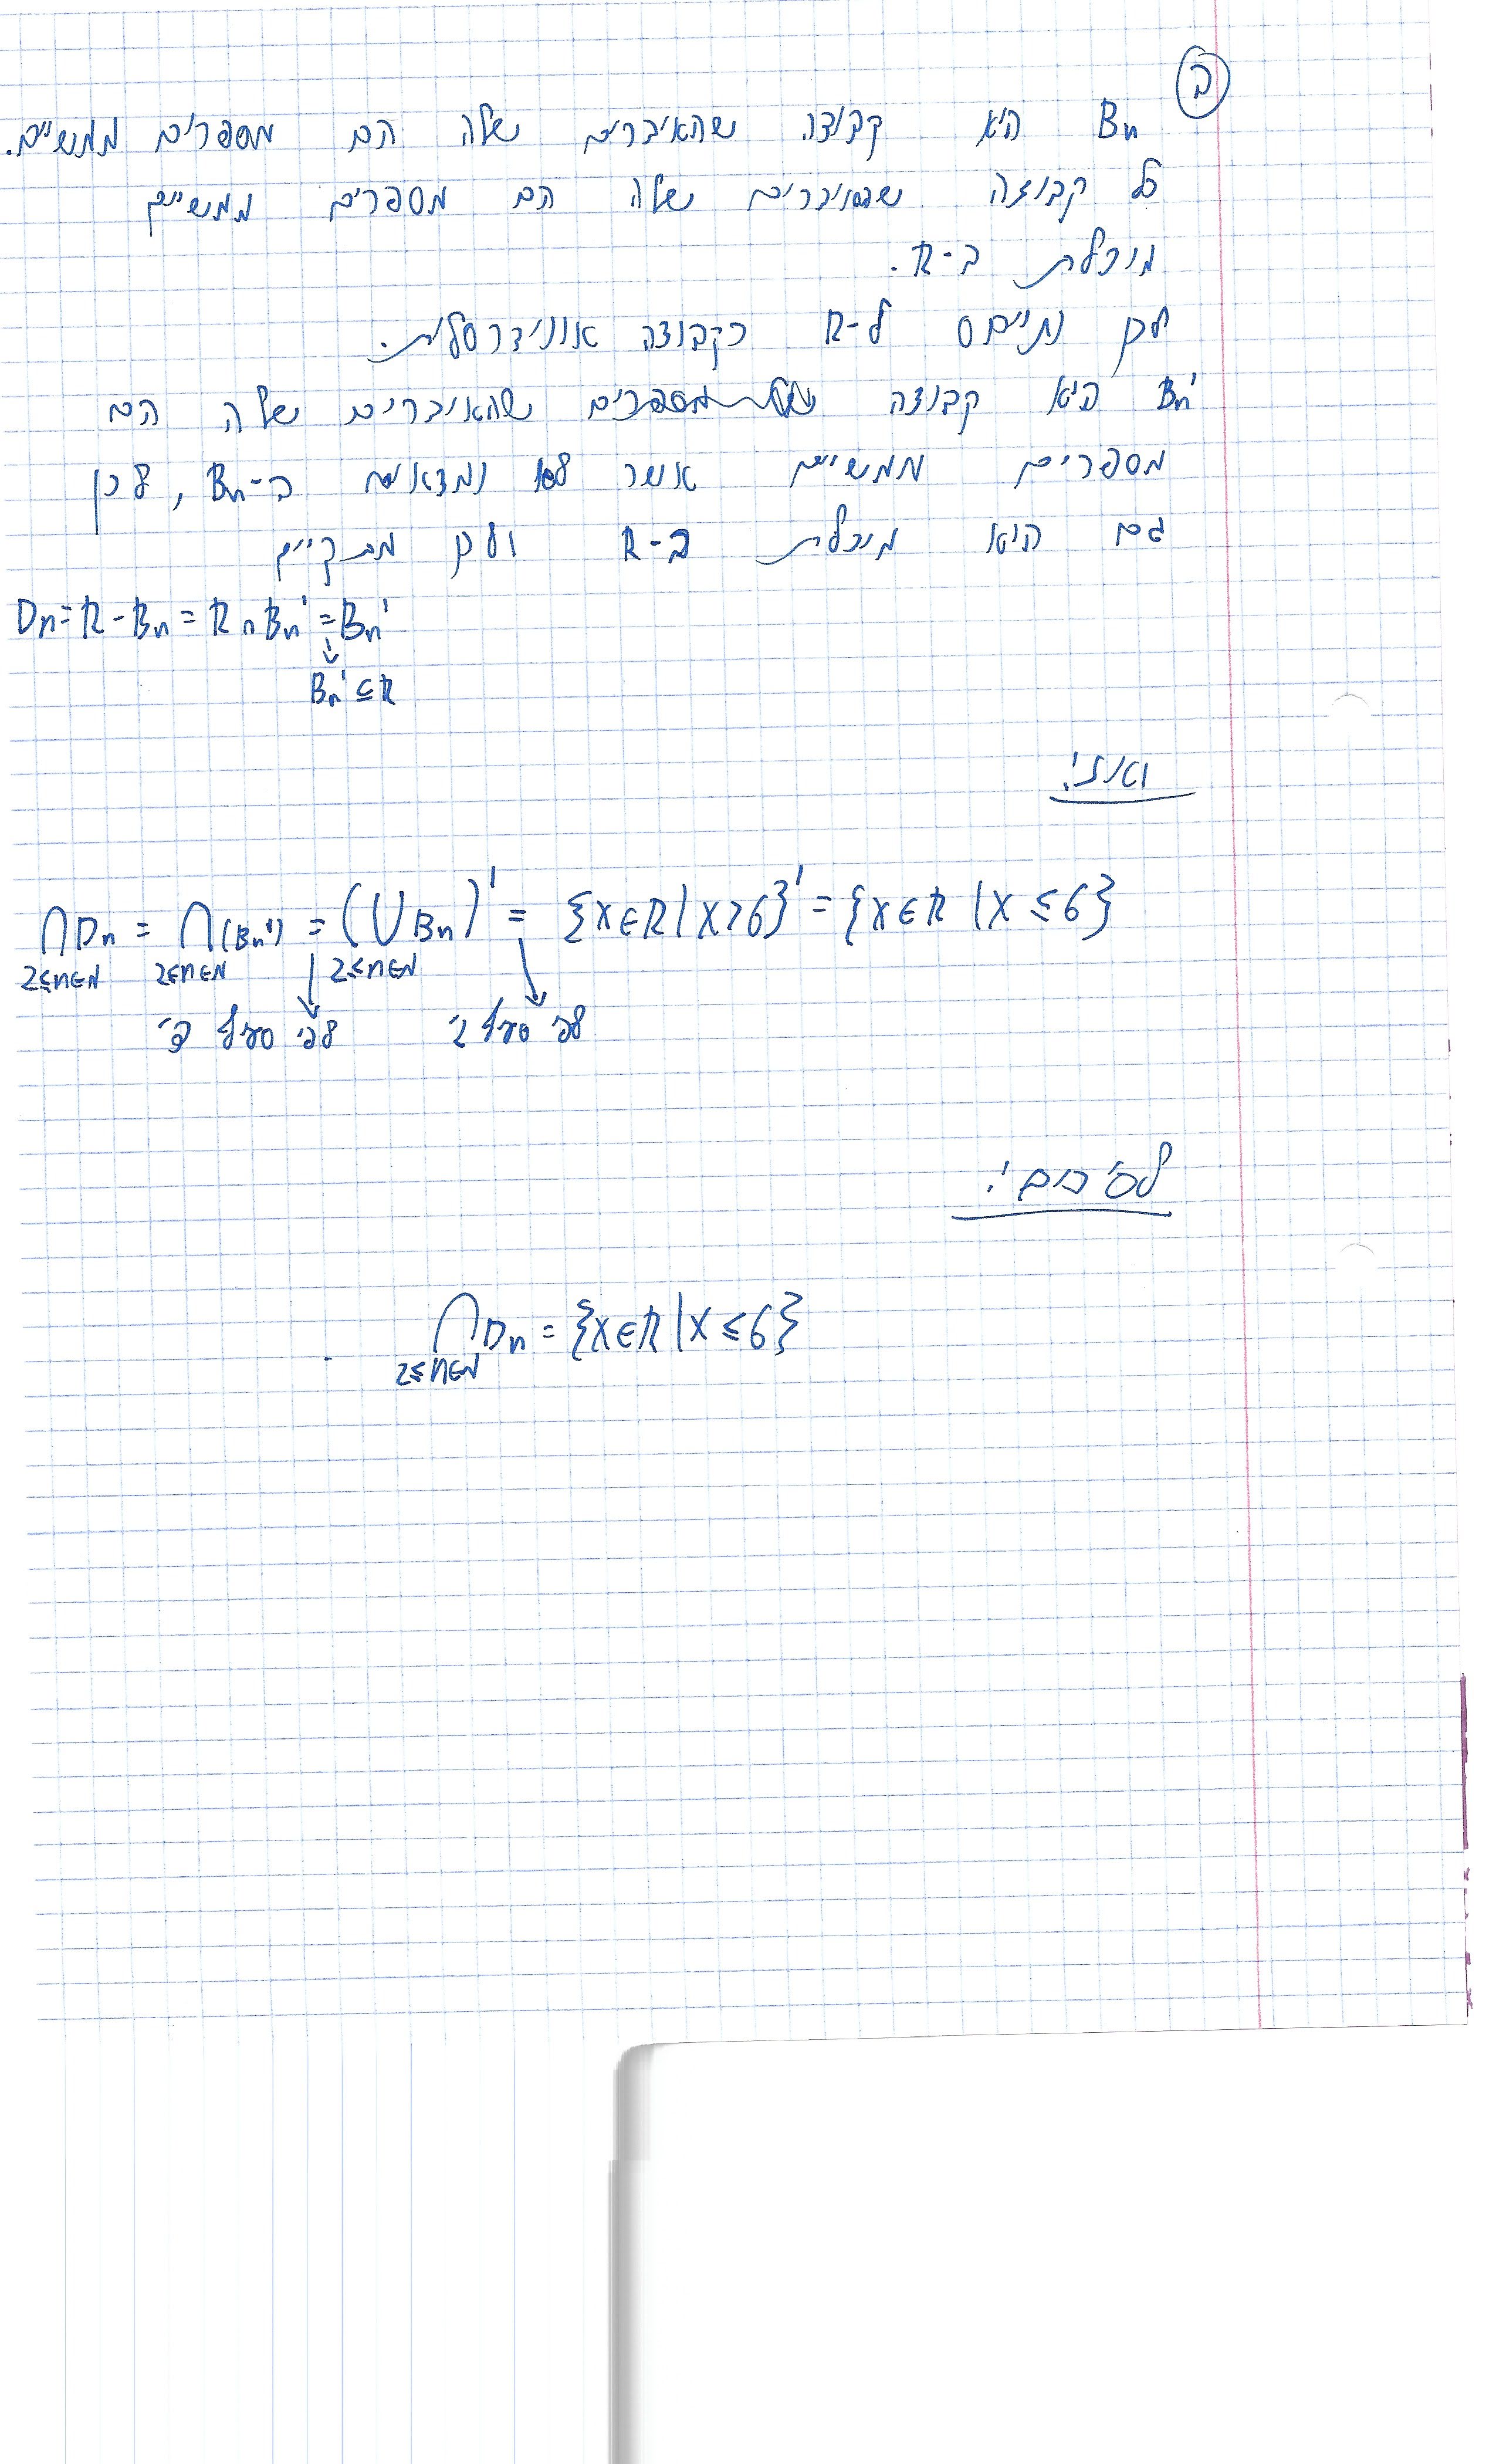 ב
Bₙ היא קבוצה שהאיברים שלה הם מספרים ממשיים.
כל קבוצה שהאיברים שלה הם מספרים ממשיים
מוכלת ב-R.
לכן נתייחס ל-R כקבוצה אוניברסלית.
Bₙ' היא קבוצה שהאיברים שלה הם
מספרים ממשיים אשר לא נמצאים ב-Bₙ, לכן
גם היא מוכלת ב-R ולכן מתקיים
Dₙ = R - Bₙ = R ∩ Bₙ' = Bₙ'
Bₙ' ⊆ R
ואז:
∩Dₙ = ∩(Bₙ') = (∪Bₙ)' = {x∈R | x>6}' = {x∈R | x ≤ 6}
2≤n∈N 2≤n∈N 2≤n∈N
לפי סעיף ג'
לסיכום:
∩Dₙ = {x∈R | x ≤ 6}
2≤n∈N